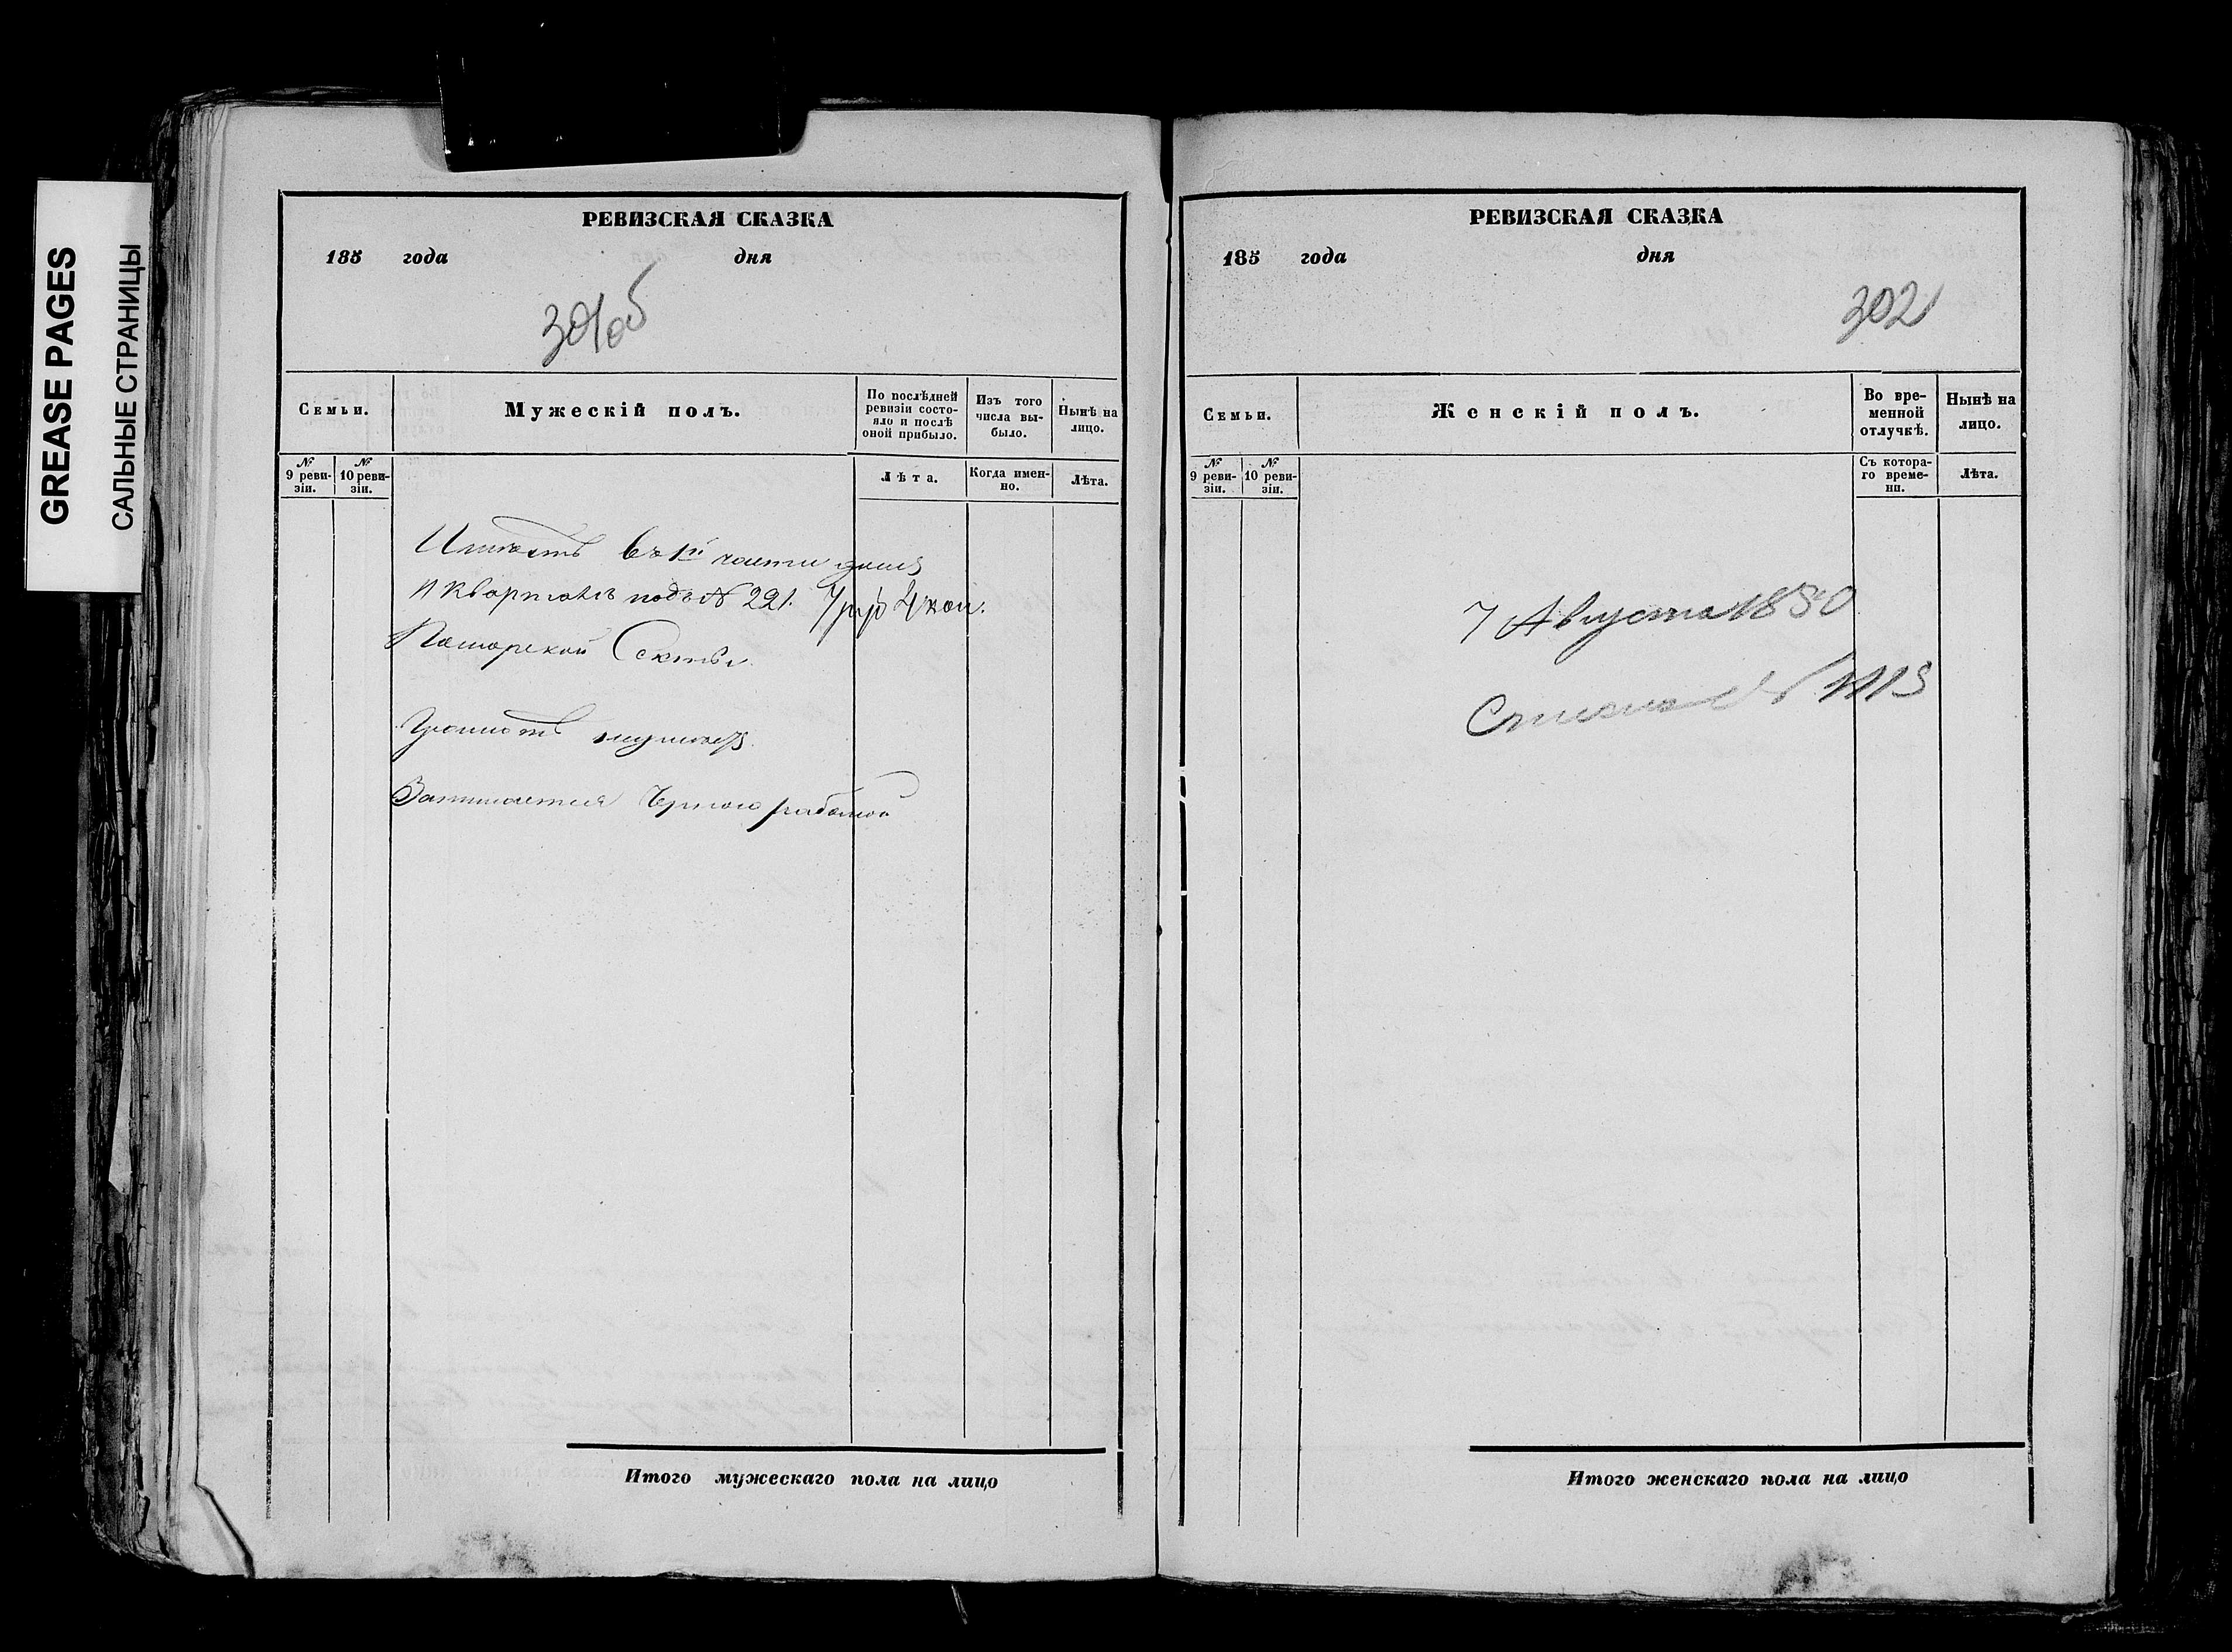 GREASE PAGES
САЛЬНЫЕ СТРАНИЦЫ
РЕВИЗСКАЯ СКАЗКА
185 года дня
301об
Семьи.
Мужескій полъ.
По послѣдней ревизіи состояло и послѣ оной прибыло.
Изъ того числа выбыло.
Нынѣ на лицо.
№ 9 ревизіи.
№ 10 ревизіи.
Лѣта.
Когда именно.
Лѣта.
Имѣетъ въ 1й части домъ
11 Кварталѣ подъ № 221. 7 р 4 коп.
Поморской Секты
Грамотѣ
Занимается Черною работою
Итого мужескаго пола на лицо
РЕВИЗСКАЯ СКАЗКА
185 года дня
302
Семьи.
Женскій полъ.
Во временной отлучкѣ.
Нынѣ на лицо.
№ 9 ревизіи.
№ 10 ревизіи.
Съ котораго времени.
Лѣта.
7 Августа 1850
Итого женскаго пола на лицо